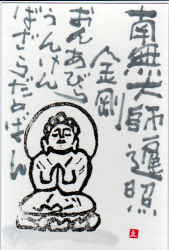 南無大師遍照
金剛
おんあびら
うんけん
ばざらだとばん
え